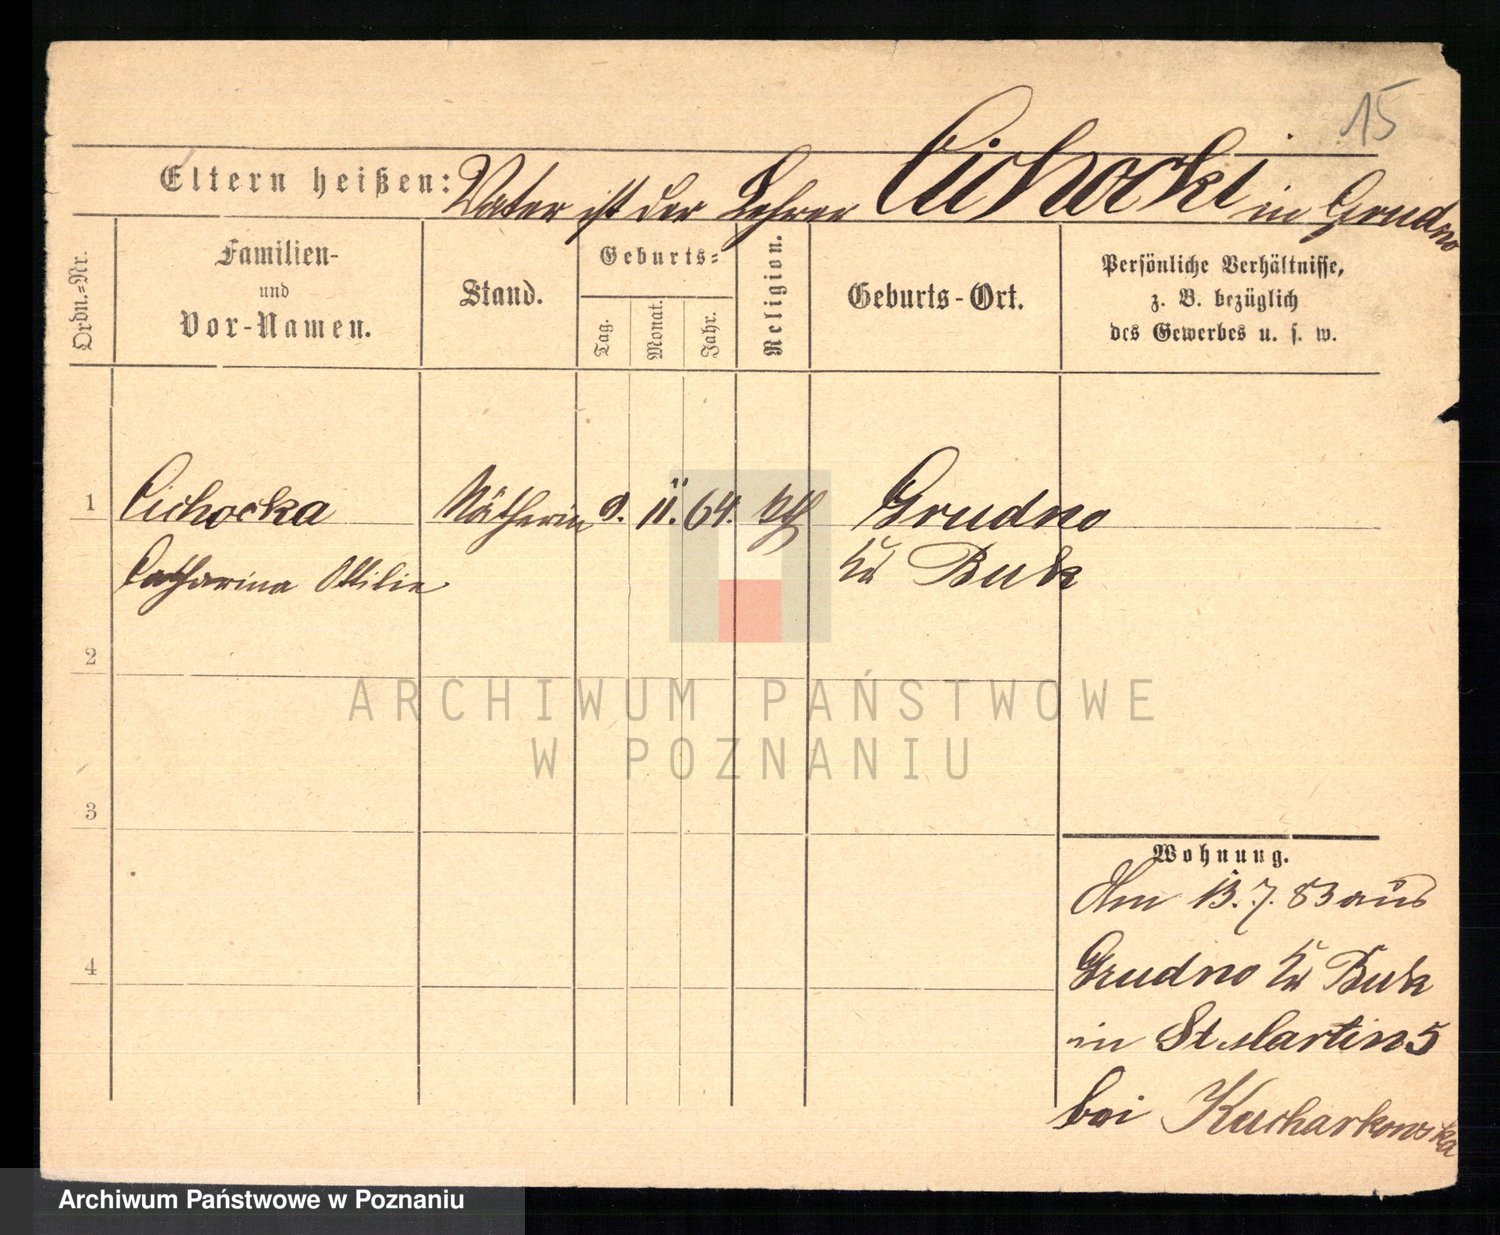 15
Eltern heißen: Vater ist der Lehrer Cichocki in Grudno
Ordn.=Nr.
Familien-
und
Vor-Namen.
Stand.
Geburts=
Tag.
Monat.
Jahr.
Religion.
Geburts-Ort.
Persönliche Verhältnisse,
z. B. bezüglich
des Gewerbes u. s. w.
1 Cichocka Nätherin 9. 11. 64. kth Grudno
Catharina Ottilie Kr Buk
2
3
4
Wohnung.
Am 13. 7. 83 aus
Grudno Kr Buk
in St. Martin 5
bei Kucharkowska
ARCHIWUM PAŃSTWOWE
W POZNANIU
Archiwum Państwowe w Poznaniu